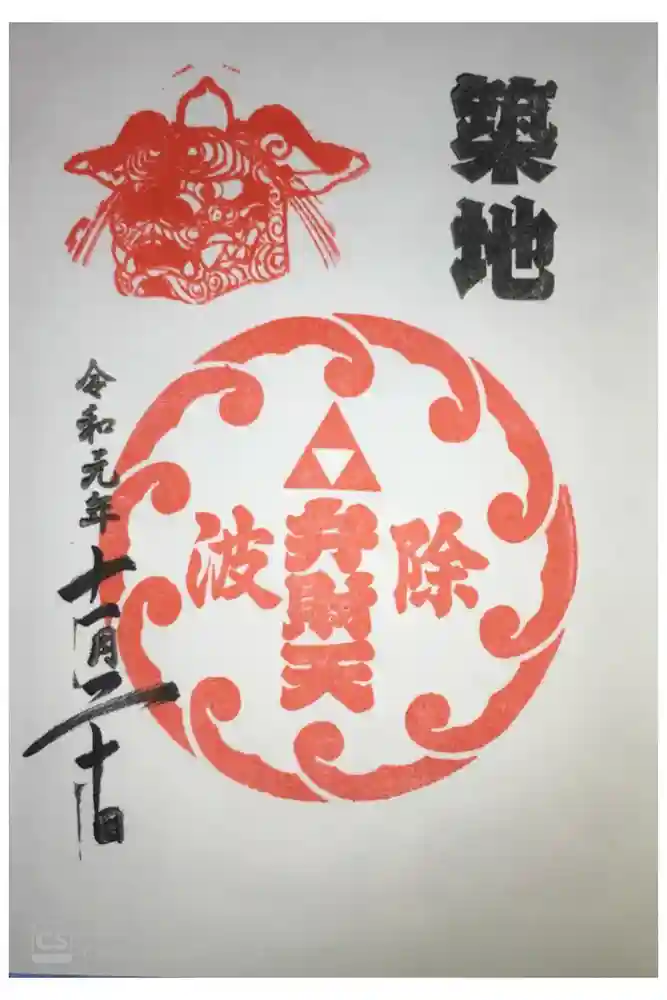 築地
除
弁財天
波
令和元年
十一月二十日
CS